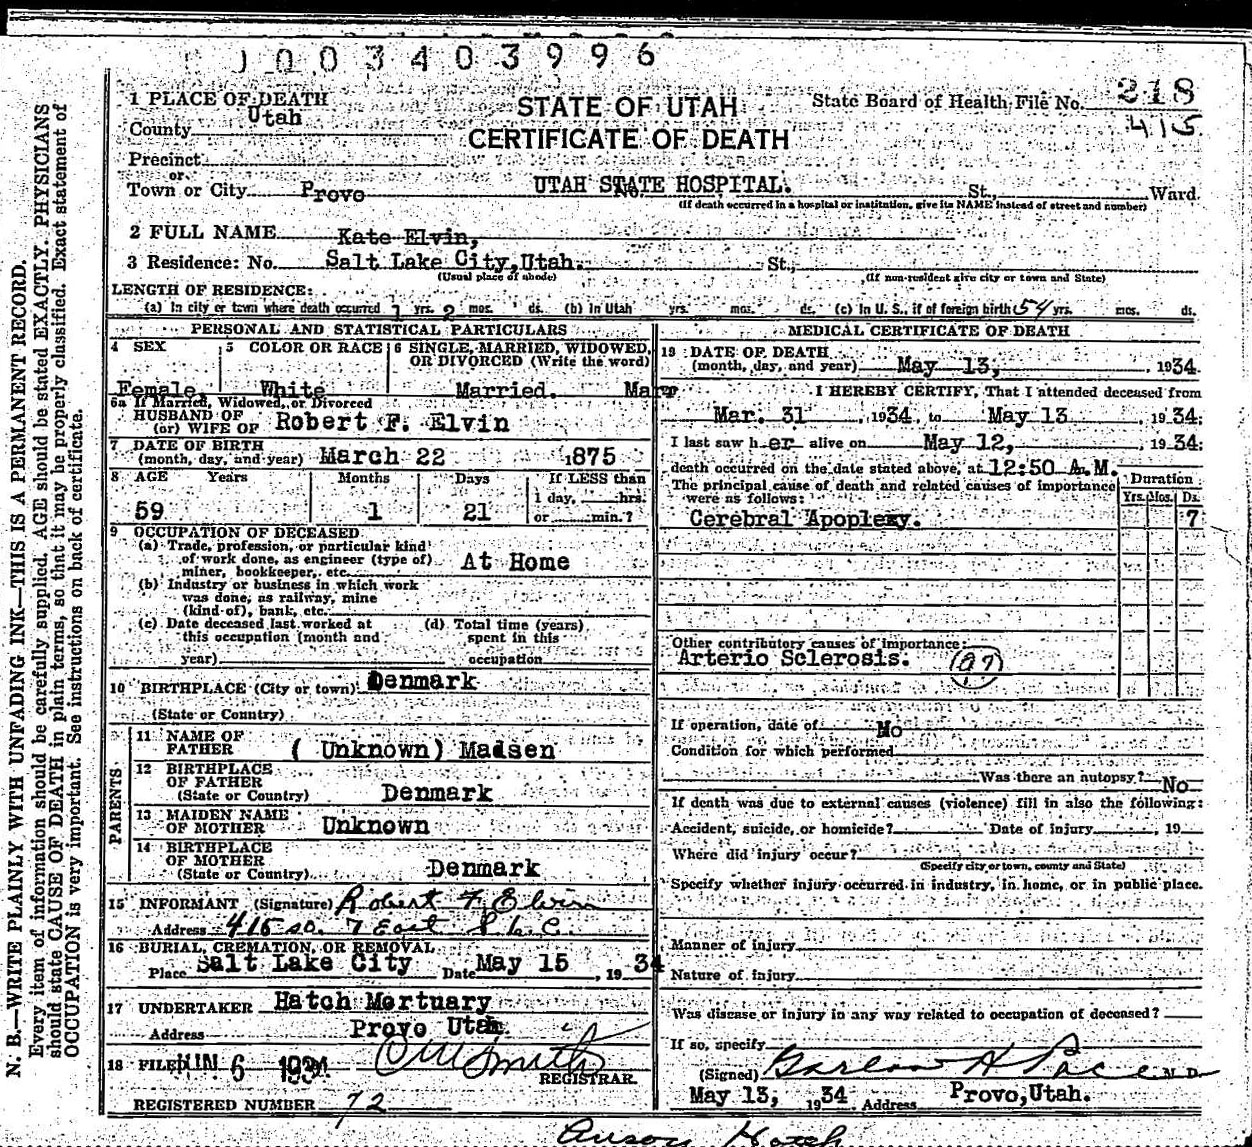 1003403996
218
415
State Board of Health File No.
STATE OF UTAH
CERTIFICATE OF DEATH
1 PLACE OF DEATH
County Utah
Precinct
or
Town or City Provo No. UTAH STATE HOSPITAL. St., Ward.
(If death occurred in a hospital or institution, give its NAME instead of street and number)
2 FULL NAME Kate Elvin,
3 Residence: No. Salt Lake City, Utah. St.,
(Usual place of abode) (If non-resident give city or town and State)
LENGTH OF RESIDENCE:
(a) In city or town where death occurred 1 yrs. 2 mos. ds. (b) In Utah yrs. mos. ds. (c) In U. S., if of foreign birth 54 yrs. mos. ds.
PERSONAL AND STATISTICAL PARTICULARS
4 SEX 5 COLOR OR RACE 6 SINGLE, MARRIED, WIDOWED,
OR DIVORCED (Write the word)
Female. White Married.
6a If Married, Widowed, or Divorced
HUSBAND OF
(or) WIFE OF Robert F. Elvin
7 DATE OF BIRTH
(month, day, and year) March 22 1875
8 AGE Years Months Days If LESS than
1 day, hrs.
59 1 21 or min.?
9 OCCUPATION OF DECEASED
(a) Trade, profession, or particular kind
of work done, as engineer (type of)
miner, bookkeeper, etc. At Home
(b) Industry or business in which work
was done, as railway, mine
(kind of), bank, etc.
(c) Date deceased last worked at
this occupation (month and
year)
(d) Total time (years)
spent in this
occupation
10 BIRTHPLACE (City or town) Denmark
(State or Country)
PARENTS
11 NAME OF
FATHER ( Unknown) Madsen
12 BIRTHPLACE
OF FATHER
(State or Country) Denmark
13 MAIDEN NAME
OF MOTHER Unknown
14 BIRTHPLACE
OF MOTHER
(State or Country) Denmark
15 INFORMANT (Signature) Robert F. Elvin
Address 415 so. 7 East S L C.
16 BURIAL, CREMATION, OR REMOVAL
Place Salt Lake City Date May 15, 1934
17 UNDERTAKER Hatch Mortuary
Address Provo Utah.
18 FILED JUN 6 1934 Smith
REGISTRAR.
REGISTERED NUMBER 72
MEDICAL CERTIFICATE OF DEATH
19 DATE OF DEATH
(month, day, and year) May 13, 1934.
I HEREBY CERTIFY, That I attended deceased from
Mar. 31, 1934, to May 13, 1934.
I last saw her alive on May 12, 1934.
death occurred on the date stated above, at 12:50 A.M.
The principal cause of death and related causes of importance
were as follows:
Duration
Yrs. Mos. Ds.
Cerebral Apoplexy. 7
Other contributory causes of importance:
Arterio Sclerosis.
If operation, date of No
Condition for which performed
Was there an autopsy? No
If death was due to external causes (violence) fill in also the following:
Accident, suicide, or homicide? Date of injury, 19
Where did injury occur?
(Specify city or town, county and State)
Specify whether injury occurred in industry, in home, or in public place.
Manner of injury
Nature of injury
Was disease or injury in any way related to occupation of deceased?
If so, specify
(Signed) Garland H. Pace M. D.
May 13, 1934 Address Provo, Utah.
Anson Hatch
N. B.—WRITE PLAINLY WITH UNFADING INK—THIS IS A PERMANENT RECORD.
Every item of information should be carefully supplied. AGE should be stated EXACTLY. PHYSICIANS
should state CAUSE OF DEATH in plain terms, so that it may be properly classified. Exact statement of
OCCUPATION is very important. See instructions on back of certificate.